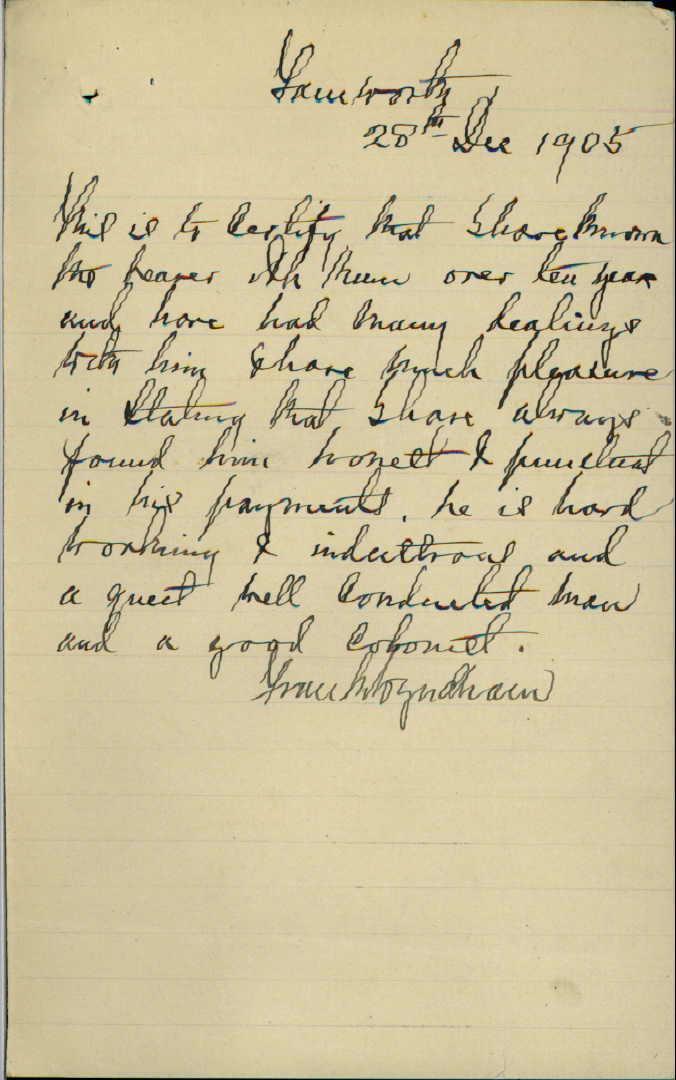 Tamworth
28th Dec 1905
This is to Certify that I have known
the bearer Ah Kum over ten year
and have had many dealings
with him I have much pleasure
in Stating that I have always
found him honest & punctual
in his payments, he is hard
working & industrous and
a quiet well Conducted man
and a good Colonist.
Frank Wyndham